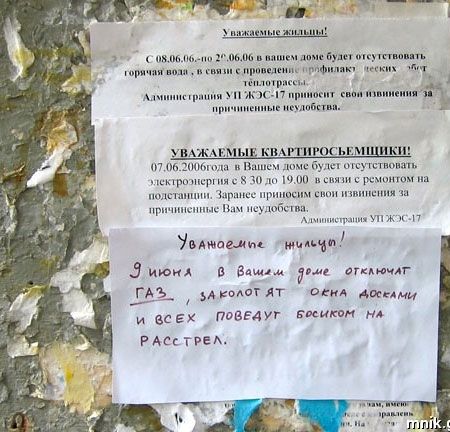 Уважаемые жильцы!
С 08.06.06.-по 20.06.06 в вашем доме будет отсутствовать
горячая вода , в связи с проведение профилакт ческих
теплотрассы.
Администрация УП ЖЭС-17 приносит свои извинения за
причиненные неудобства.
УВАЖАЕМЫЕ КВАРТИРОСЪЕМЩИКИ!
07.06.2006года в Вашем доме будет отсутствовать
электроэнергия с 8 30 до 19.00 в связи с ремонтом на
подстанции. Заранее приносим свои извинения за
причиненные Вам неудобства.
Администрация УП ЖЭС-17
Уважаемые жильцы!
9 июня в Вашем доме отключат
ГАЗ, ЗАКОЛОТЯТ ОКНА ДОСКАМИ
И ВСЕХ ПОВЕДУТ БОСИКОМ НА
РАССТРЕЛ.
mnik.